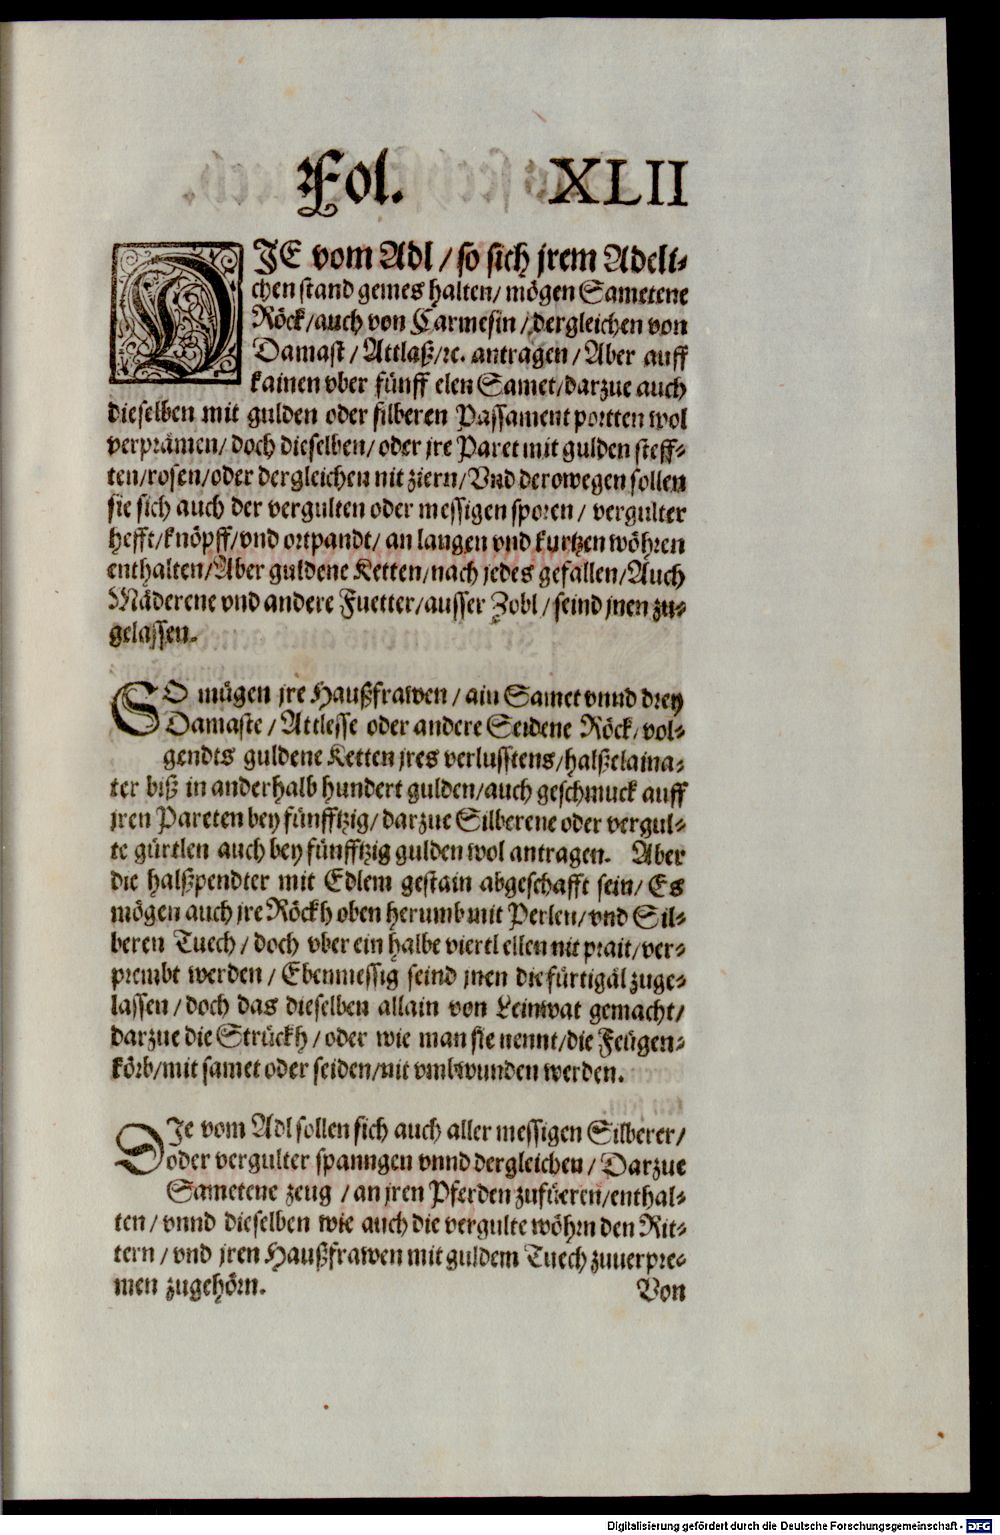 Fol. XLII
DIE vom Adl / so sich jrem Adeli⸗
chen stand gemes halten / mögen Sametene
Röck / auch von Carmesin / dergleichen von
Damast / Attlaß / ꝛc. antragen / Aber auff
kainen vber fünff elen Samet / darzue auch
dieselben mit gulden oder silberen Passament portten wol
verprämen / doch dieselben / oder jre Paret mit gulden steff⸗
ten / rosen / oder dergleichen nit ziern / Vnd derowegen sollen
sie sich auch der vergulten oder messigen sporen / vergulter
hefft / knöpff / vnd ortpandt / an langen vnd kurtzen wöhren
enthalten / Aber guldene Ketten / nach jedes gefallen / Auch
Mäderene vnd andere Fuetter / ausser Zobl / seind jnen zu⸗
gelassen.
SO mügen jre Haußfrawen / ain Samet vnnd drey
Damaste / Attlesse oder andere Seidene Röck / vol⸗
gendts guldene Ketten jres verlusstens / halßclaina⸗
ter biß in anderhalb hundert gulden / auch geschmuck auff
jren Pareten bey fünfftzig / darzue Silberene oder vergul⸗
te gürtlen auch bey fünfftzig gulden wol antragen. Aber
die halßpendter mit Edlem gestain abgeschafft sein / Es
mögen auch jre Röckh oben herumb mit Perlen / vnd Sil⸗
beren Tuech / doch vber ein halbe viertl ellen nit prait / ver⸗
prembt werden / Ebenmessig seind jnen die fürtigäl zuge⸗
lassen / doch das dieselben allain von Leinwat gemacht /
darzue die Strückh / oder wie man sie nennt / die Feügen⸗
körb / mit samet oder seiden / nit vmbwunden werden.
DIe vom Adl sollen sich auch aller messigen Silberer /
oder vergulter spanngen vnnd dergleichen / Darzue
Sametene zeug / an jren Pferden zufüeren / enthal⸗
ten / vnnd dieselben wie auch die vergulte wöhrn den Rit⸗
tern / vnd jren Haußfrawen mit guldem Tuech zuuerpre⸗
men zugehörn. Von
Digitalisierung gefördert durch die Deutsche Forschungsgemeinschaft - DFG